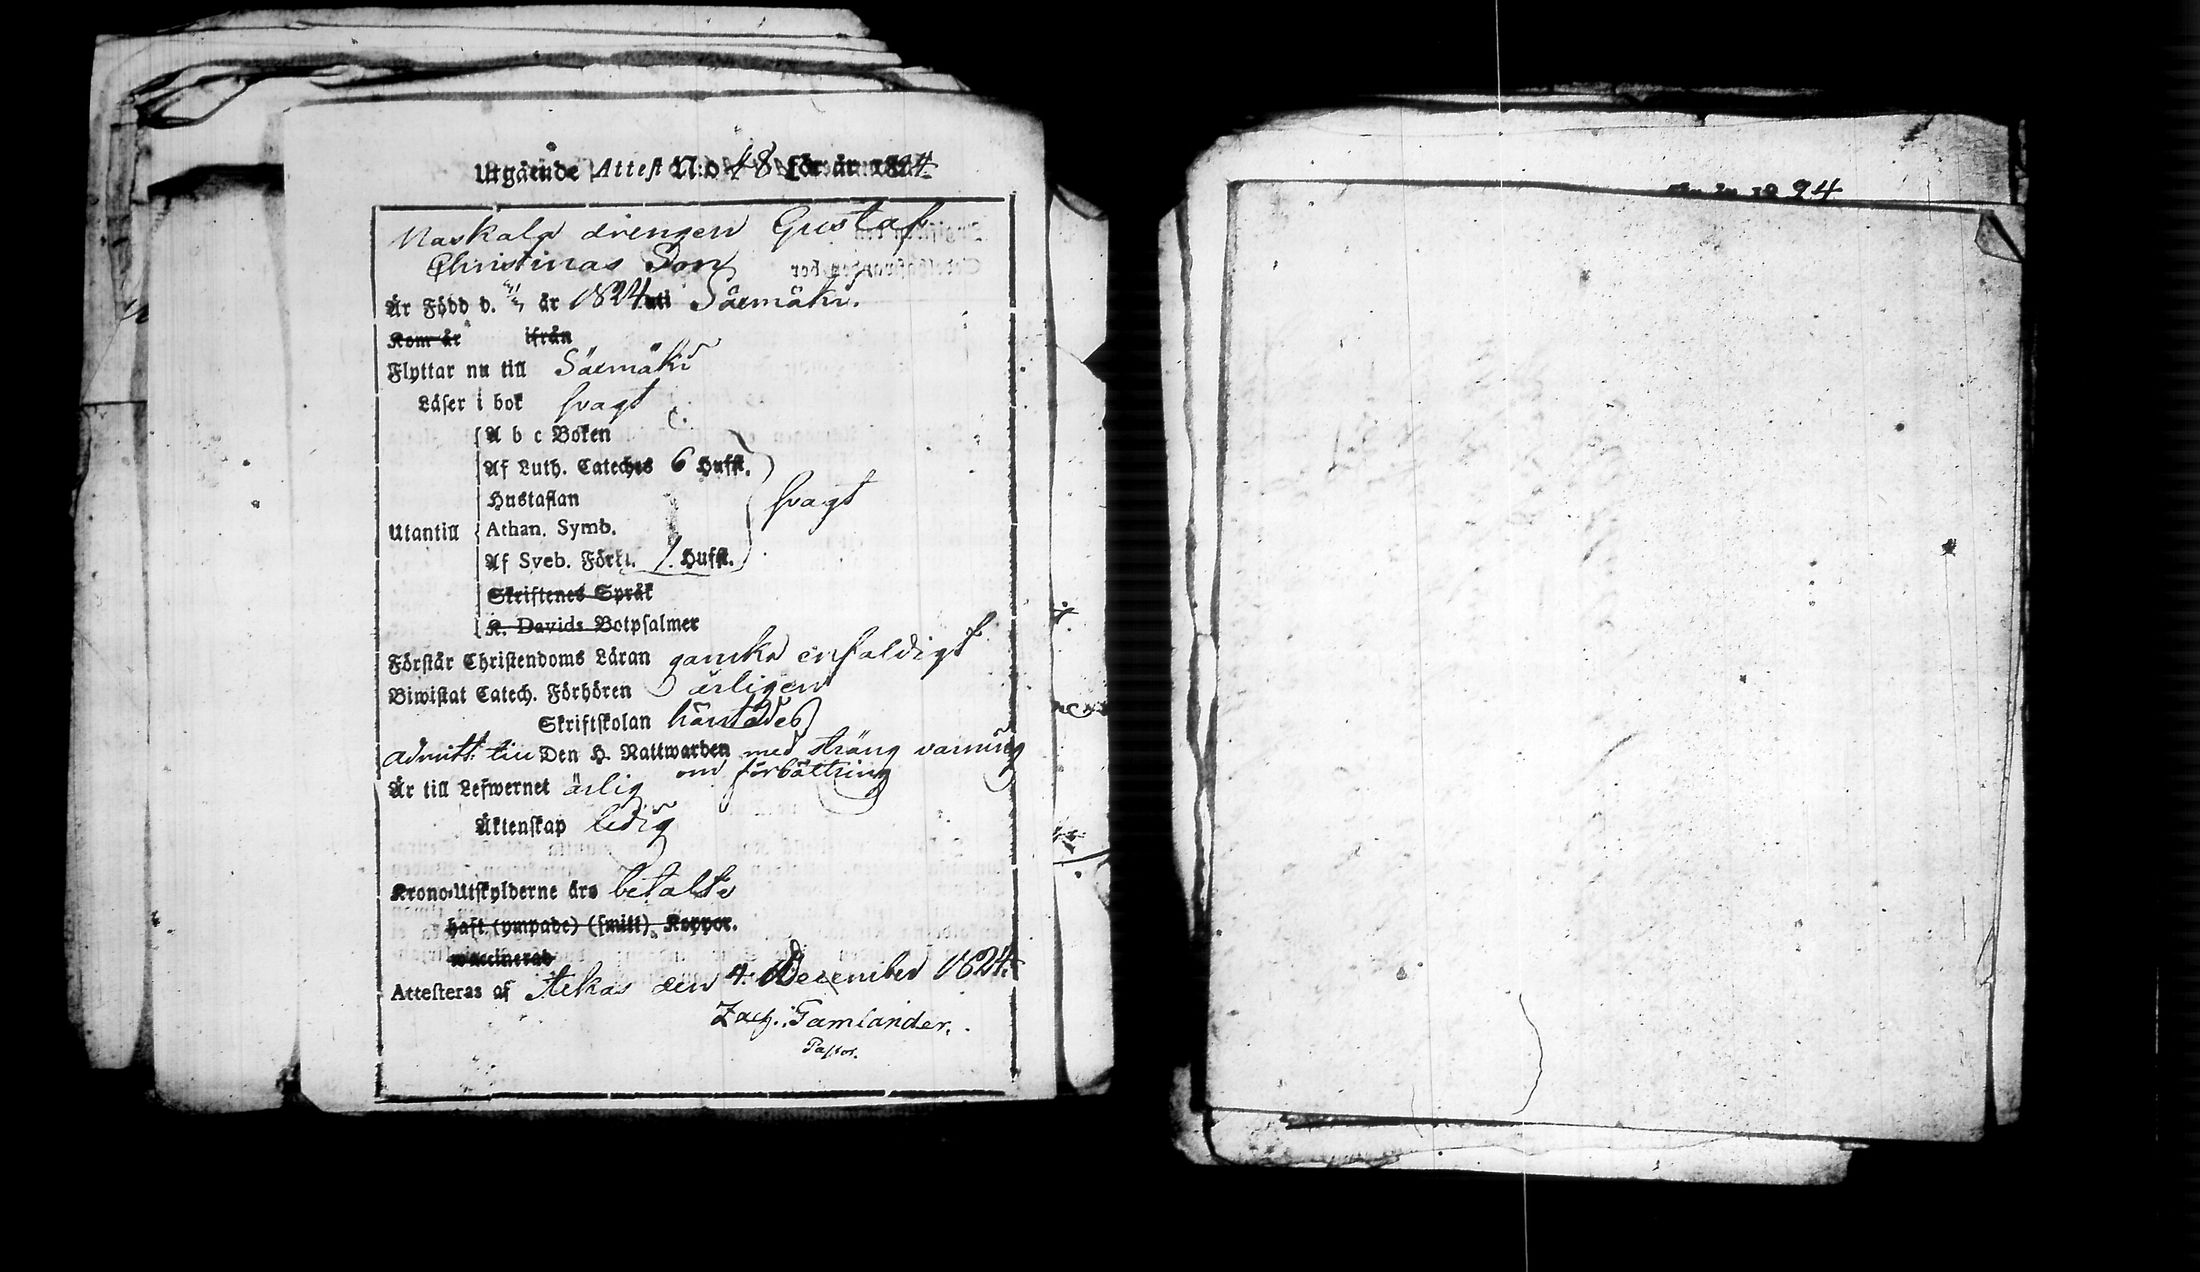 Utgående Attest N:o 48 för år 1824.
Maskala drengen Gustaf
Christinas Son
Är Född d. år 1824 uti Säkmäki.
Kom år ifrån
Flyttar nu till Säkmäki
Läser i bok svagt
A b c Boken
Af Luth. Cateches 6 Hufst.
Hustaflan svagt
Utantill Athan. Symb.
Af Sveb. Förkl. 1. Hufst.
Skriftenes Språk
K. Davids Botpsalmer
Förstår Christendoms Läran ganska enfaldigt
Biwistat Catech. Förhören årligen
Skriftskolan
admitt. till Den H. Nattwarden med sträng varning
om förbättring
Är till Lefwernet ärlig
Äktenskap ledig
Krono-Utskylderne äro betalte
haft (ympade) (smitt) Koppor.
waccinerad
Attesteras af den 4. December 1824.
Zach. Gamlander.
Pastor.
94